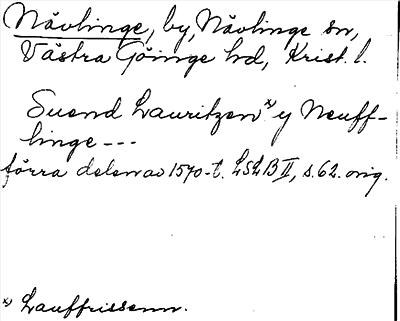 Nävlinge, by, Nävlinge sn,
Västra Göinge hd, Krist. l.
Suend Lauritzen x) y Neuff-
linge ---
förra delen av 1570-t. LSLB II, s. 62. orig.
x) Lauffrissenn.